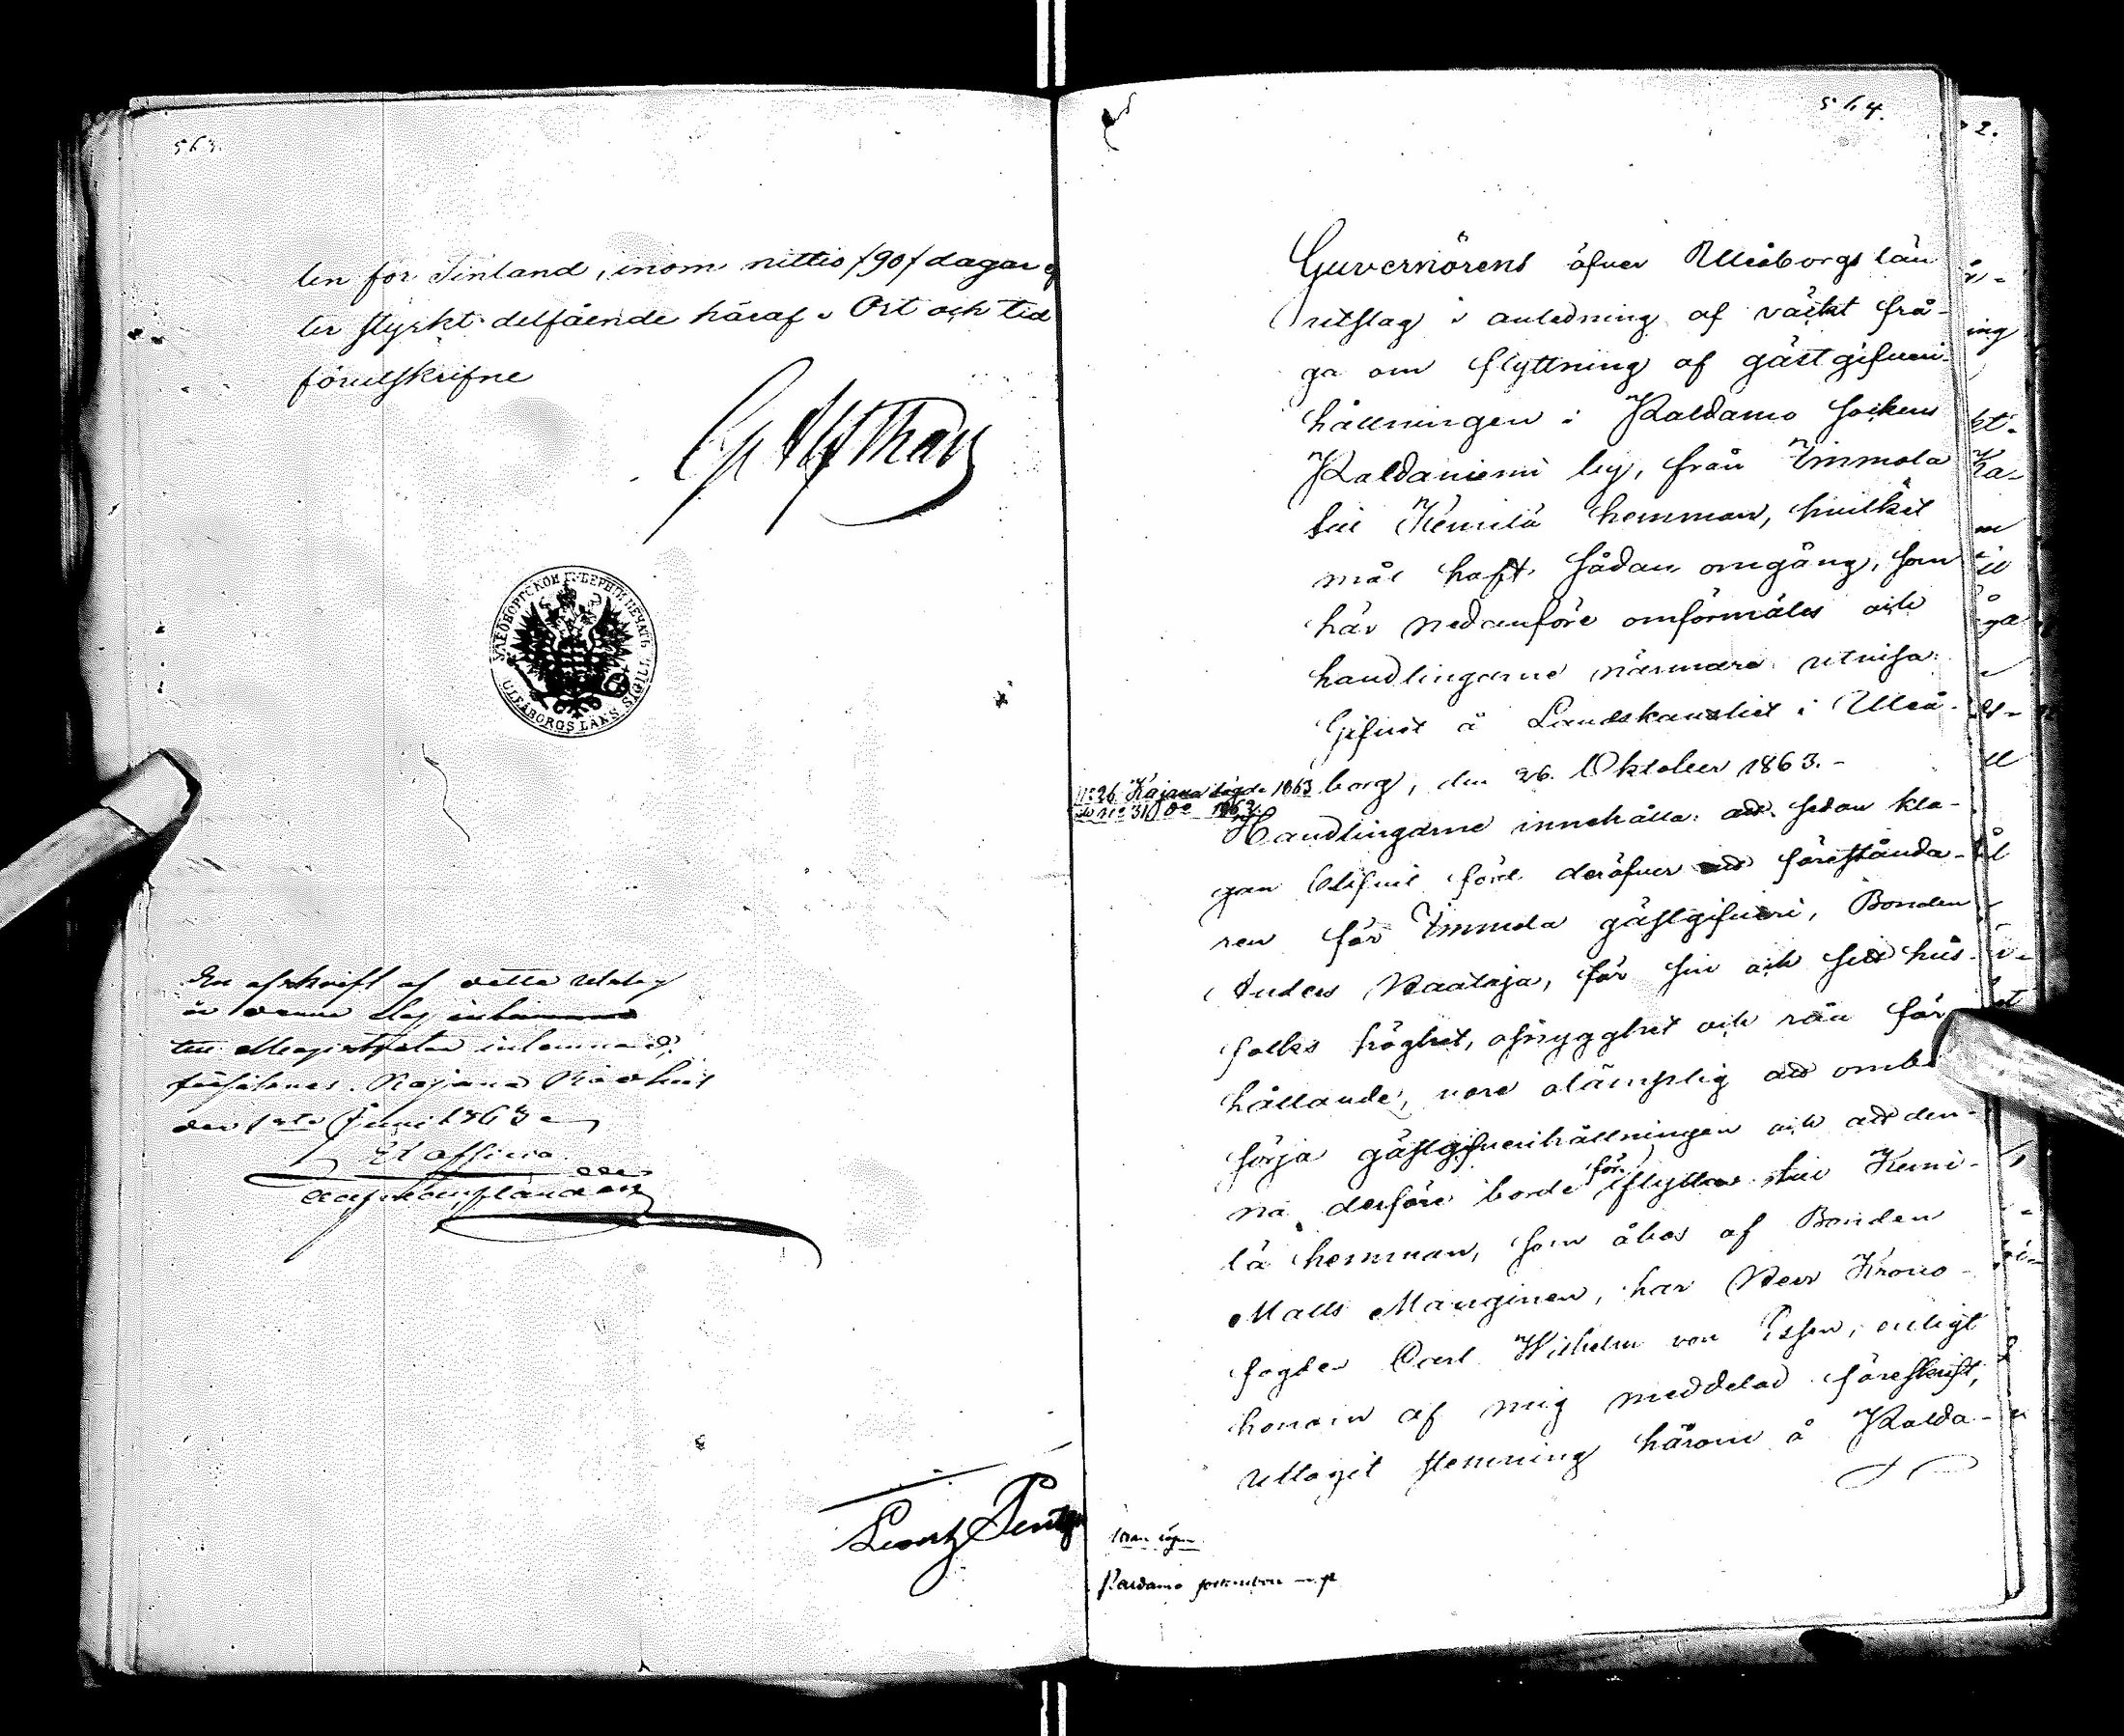 563.
ten för Finland, inom nittio /90/ dagar ef
ter styrkt delfående häraf. Ort och tid
förutskrifne
УЛЕОБОРГСКОЙ ГУБЕРНІИ ПЕЧАТЬ
ULEÅBORGS LÄNS SIGILL
En afskrift af detta utslag
är denna dag
till Magistraten inlemnad;
försäkras. Kajana Rådhus
den 1sta Juni 1863
Ex officio
564.
Guvernörens öfver Uleåborgs län
utslag i anledning af väckt frå-
ga om flyttning af gästgifveri-
hållningen i Paldamo socken
Paldaniemi by, från Immola
till Kemilä hemman, hvilket
mål haft sådan omgång, som
här nedanföre omförmäles och
handlingarne närmare utvisa.
Gifvet å Landskansliet i Uleå-
borg, den 26. Oktober 1863.
No 26 Kajana 1863
No 310 1863
Handlingarne innehålla: att sedan kla-
gan blifvit förd deröfver att förestånda-
ren för Immola gästgifveri, Bonden
Anders Väätäjä, för sin och sitt hus-
folks tröghet, osnygghet och råa för
hållande, vore olämplig att ombe
sörja gästgifverihållningen och att den-
na derföre borde förflyttas till Kemi-
lä hemman, som åbos af Bonden
Matts Manginen, har Herr Krono-
fogden Carl Wilhelm von Essen, enligt
honom af mig meddelad föreskrift,
uttagit stemning härom å Palda-
Paldamo